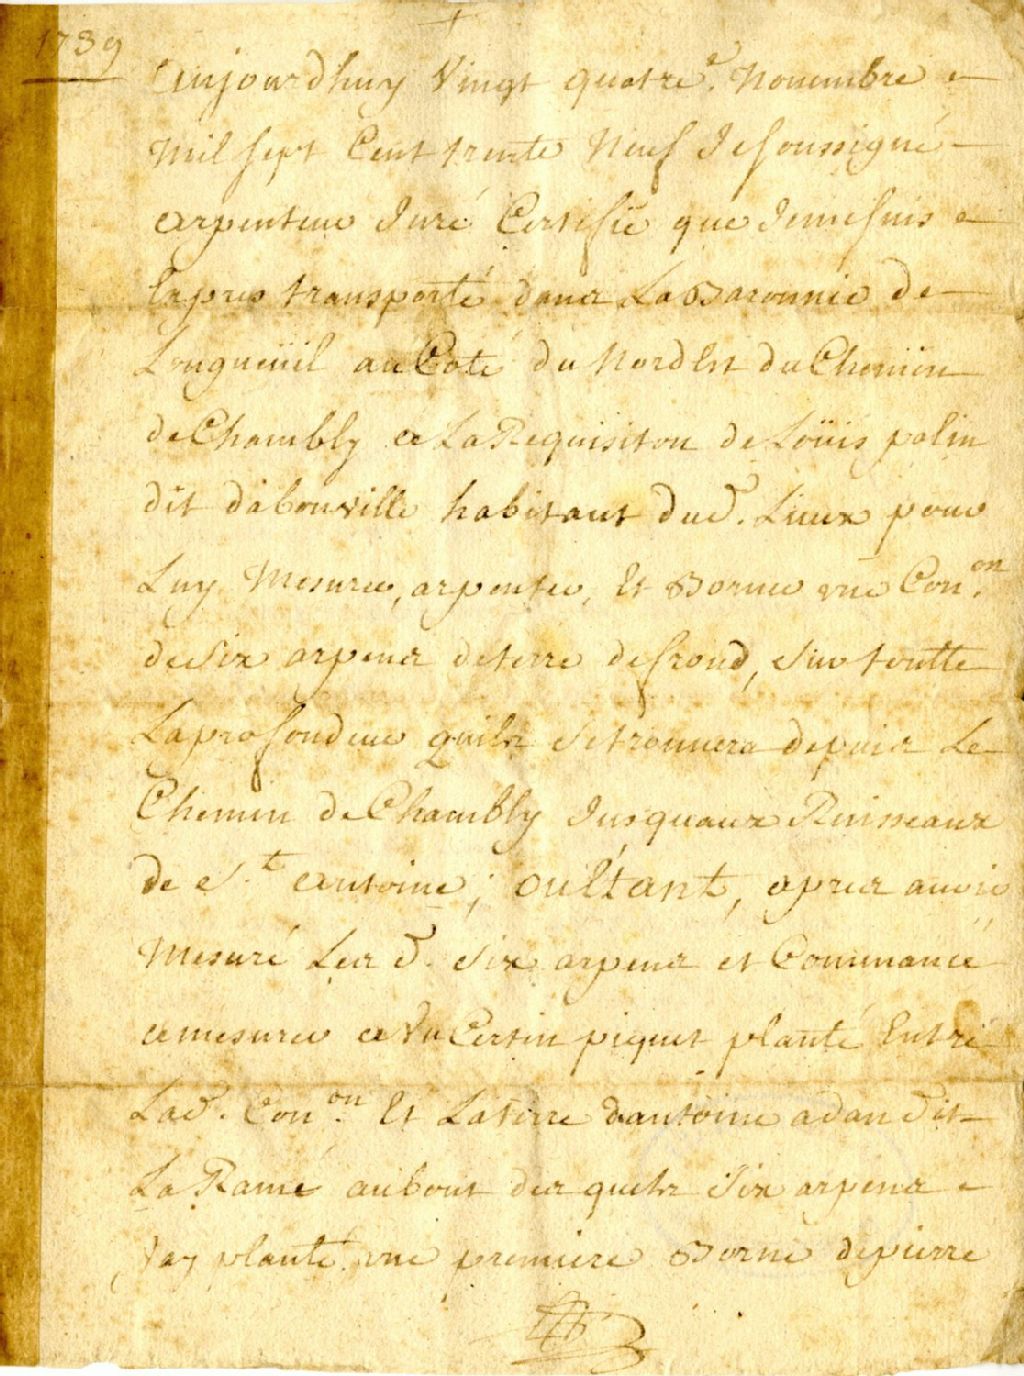 1739
Aujourdhuy Vingt quatre.e Nouembre
Mil sept Cent trente Neuf Je soussigné
arpenteur Juré Certifie que Jemesuis
Expres transporté dans LaBaronnie de
Longueüil au Coté du NordEst du Chemin
de Chambly a La Requisiton de Loüis palin
dit dabonville habitant dud. Lieux pour
Luy Mesurer, arpenter, Et Borner vne Con.on
de Six arpens deterre defrond, Sur toutte
Laprofondeur quils Setrouuera depuis Le
Chemin de Chambly Jusquaux Ruisseaux
de St antoine; oultant, apres auoir
Mesuré Les d. Six arpens et Commancé
amesurer a Vn Certin piquet planté Entre
Lad. Con.on Et Laterre dantoine adan dit
LaRamé aubout des quels Six arpens
Jay planté vne premiere Borne depierre